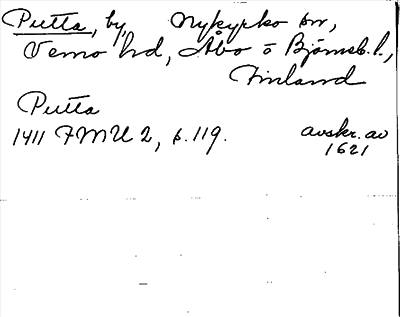 Putta, by, Nykyrko sn,
Vemo hd, Åbo o Björneb. l.,
Finland
Putta
1411 FMU 2, s. 119. avskr. av
1621